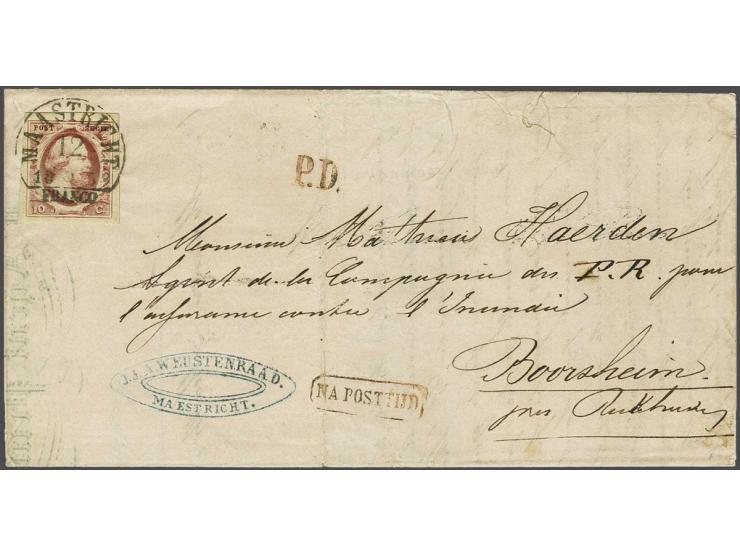 MAASTRICHT
12
FRANCO
POST ZEGEL
10 C
P.D.
Monsieur Mathieu Haerden
Agent de la Compagnie des P.R. pour
l'assurance contre l'Incendie
Boorsheim
près
J.J.A WEUSTENRAAD.
MAESTRICHT.
NA POSTTIJD